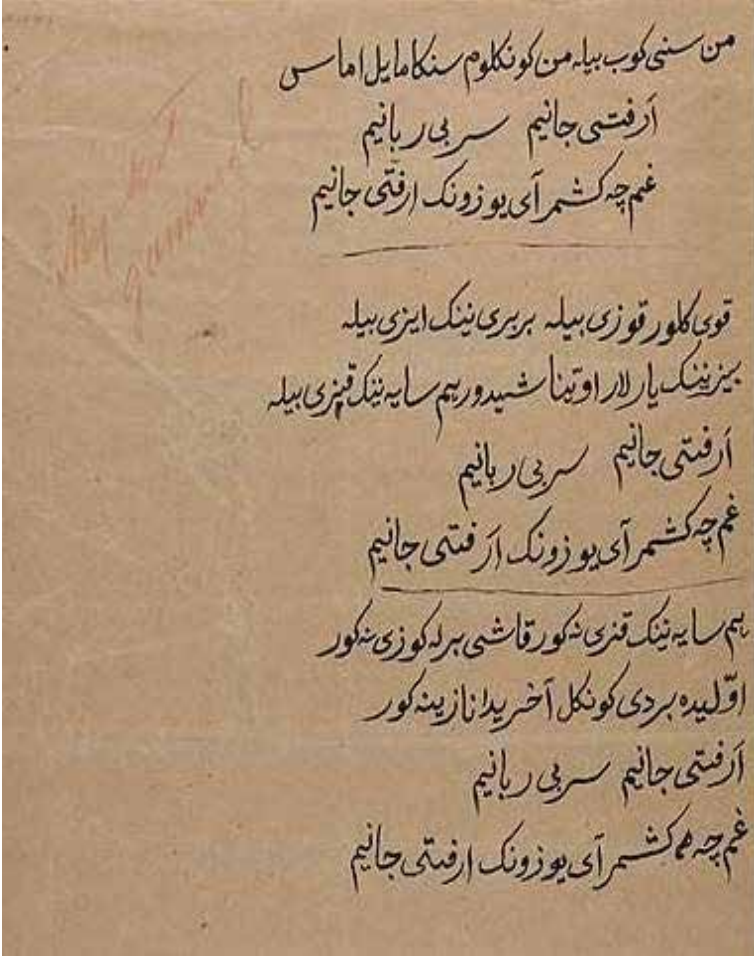 من سنی کوب بیله من کونکلوم سنکا مایل اماس
اَرفتی جانیم سر بی ربانیم
غم چه کشمر آی یوزونک ارفتی جانیم
قوی کلور قوزی بیله بربری نینک ایزی بیله
بیزنینک یارلار اوتینا شیدور هم سایه نینک قیزی بیله
اَرفتی جانیم سر بی ربانیم
غم چه کشمر آی یوزونک اَرفتی جانیم
هم سایه نینک قزی نه کور قاشی برله کوزی نه کور
اوّلیده بردی کونکل آخریدا نازینه کور
اَرفتی جانیم سر بی ربانیم
غم چه کشمر آی یوزونک ارفتی جانیم